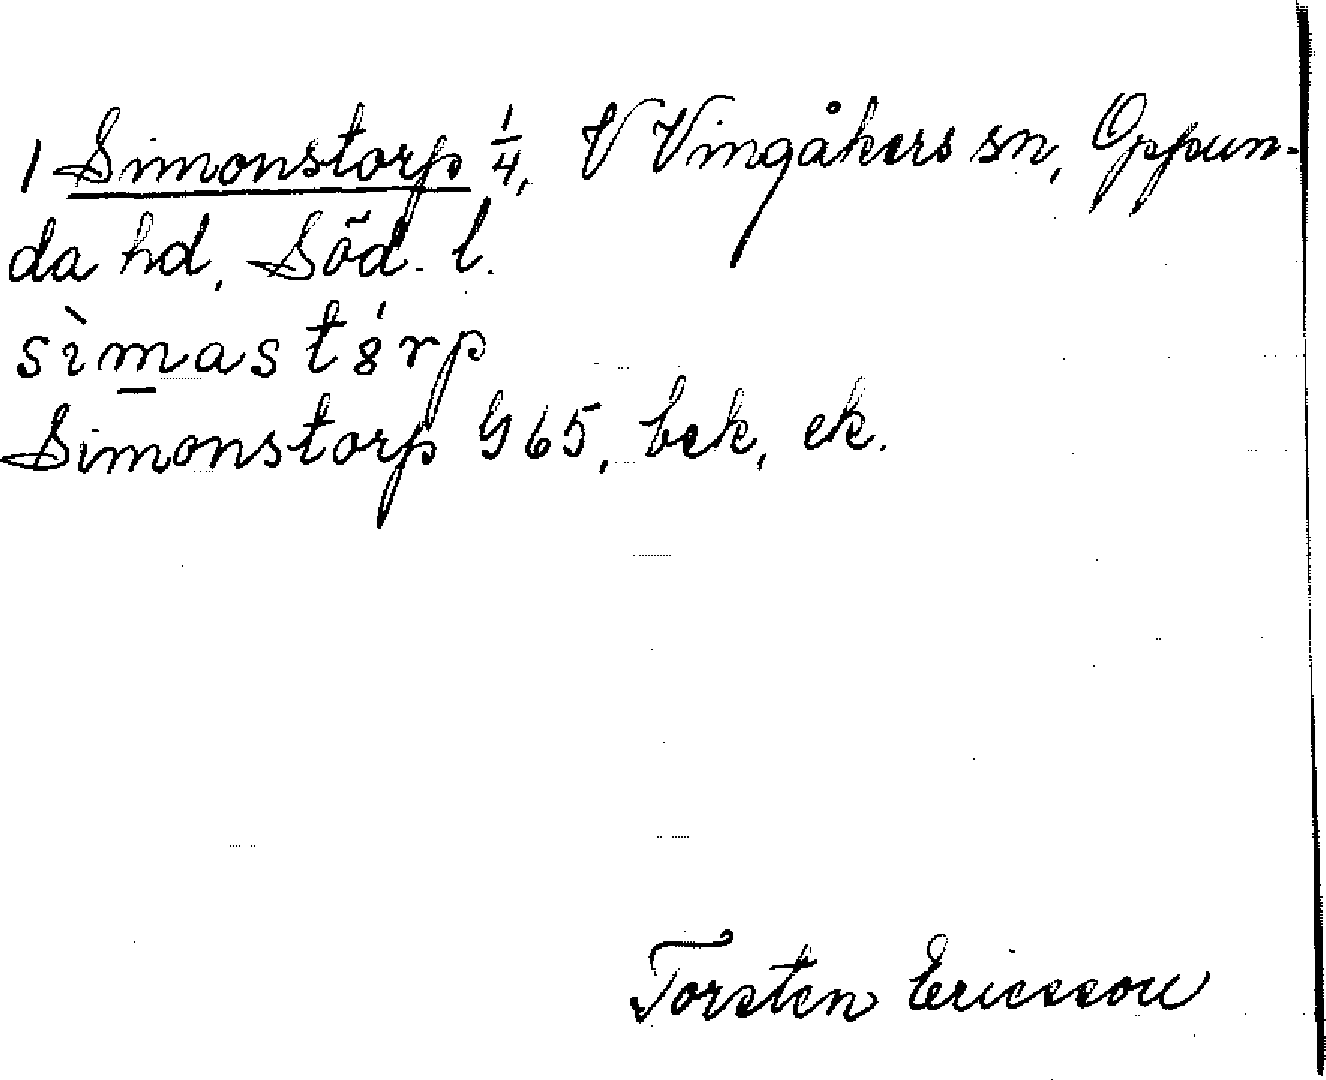 1 Simonstorp 1/4, V Vingåkers sn, Oppun-
da hd, Söd. l.
sìmastȣ́rp
Simonstorp G65, bek, ek.
Torsten Ericsson